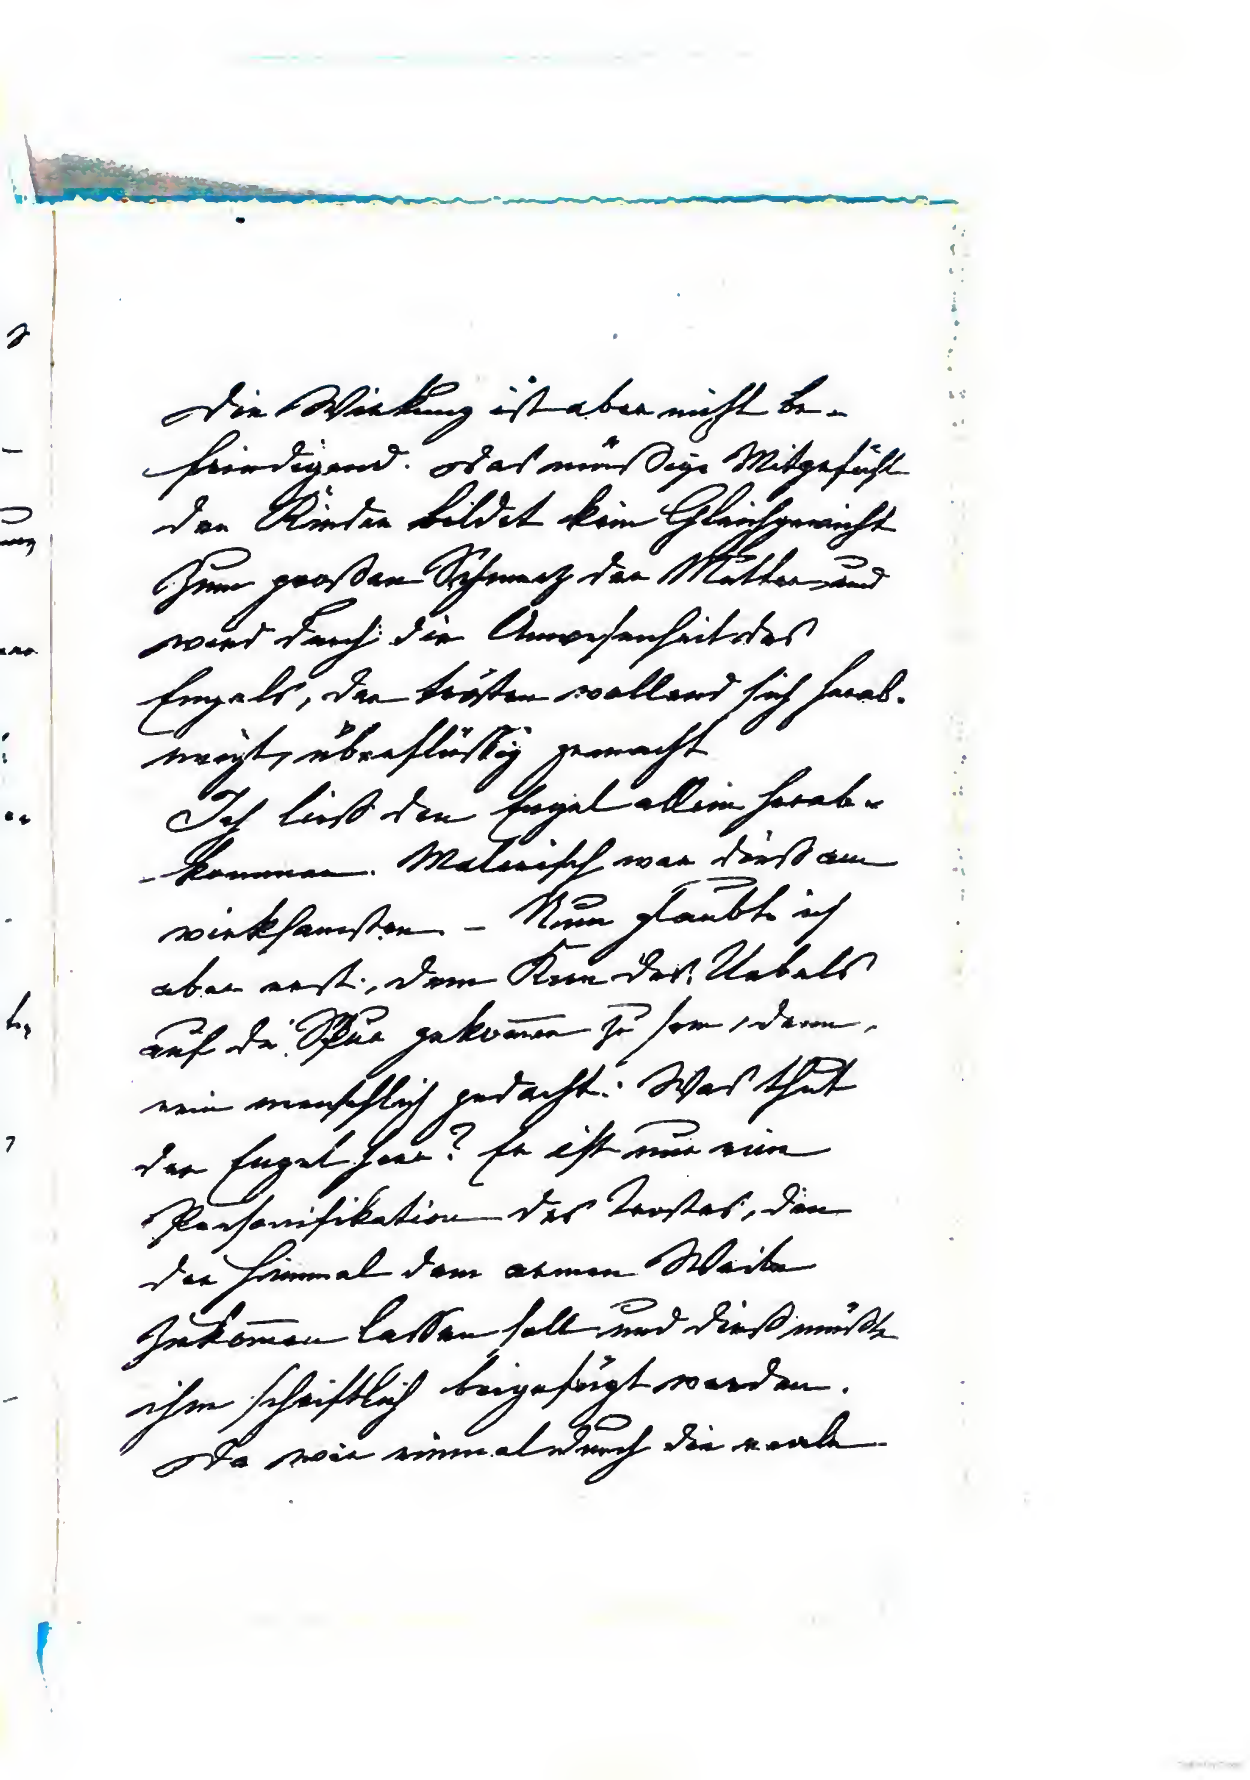 Die Wirkung ist aber nicht be-
friedigend. Das müßige Mitgefühl
der Kinder bildet kein Gleichgewicht
zum großen Schmerz der Mutter und
wird durch die Anwesenheit des
Engels, der trösten wollend sich herab-
neigt, überflüssig gemacht
Ich ließ den Engel allein herab-
-kommen. Malerisch war dieß am
wirksamsten. – Nun glaubte ich
aber erst, dem Kern des Uebels
auf die Spur gekom̄en zu sein, denn,
rein menschlich gedacht: Was thut
der Engel hier? Er ist nur eine
Personifikation des Trostes, den
der Himmel dem armen Weibe
zukom̄en lassen soll und dieß müßte
ihm schriftlich beigefügt werden.
Da wir einmal durch die reale